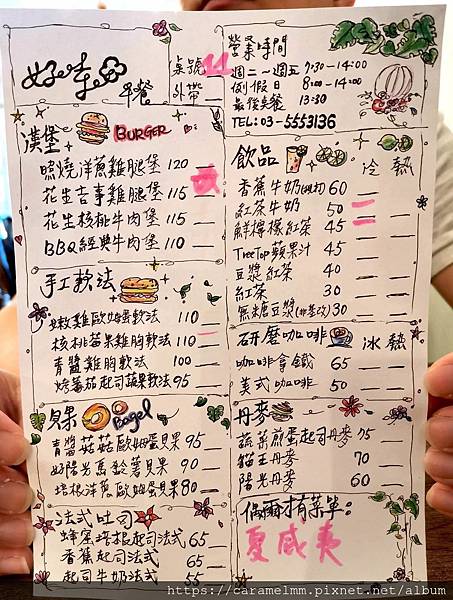 好幸
早餐
桌號 11
外帶
營業時間
週二~週五 7:30-14:00
例假日 8:00-14:00
最後点餐 13:30
TEL:03-5553136
漢堡 BURGER
照燒洋蔥雞腿堡 120
花生吉事雞腿堡 115
花生核桃牛肉堡 115
BBQ經典牛肉堡 110
手工軟法
嫩雞歐姆蛋軟法 110
核桃莓果雞胸軟法 110
青醬雞胸軟法 100
烤蕃茄起司蔬果軟法 95
貝果 Bagel
青醬菇菇歐姆蛋貝果 95
好陽光馬鈴薯貝果 90
培根洋蔥歐姆蛋貝果 80
法式吐司
蜂蜜培根起司法式 65
香蕉起司法式 65
起司牛奶法式 55
飲品 冷 熱
香蕉牛奶 60
紅茶牛奶 50
鮮檸檬紅茶 45
TreeTop蘋果汁 45
豆漿紅茶 40
紅茶 30
無糖豆漿(非基改) 30
研磨咖啡 冰 熱
咖啡拿鐵 65
美式咖啡 50
丹麥
蔬菜煎蛋起司丹麥 75
貓王丹麥 70
陽光丹麥 60
偶爾才有菜單:
夏威夷
© http://caramelmm.pixnet.net/album